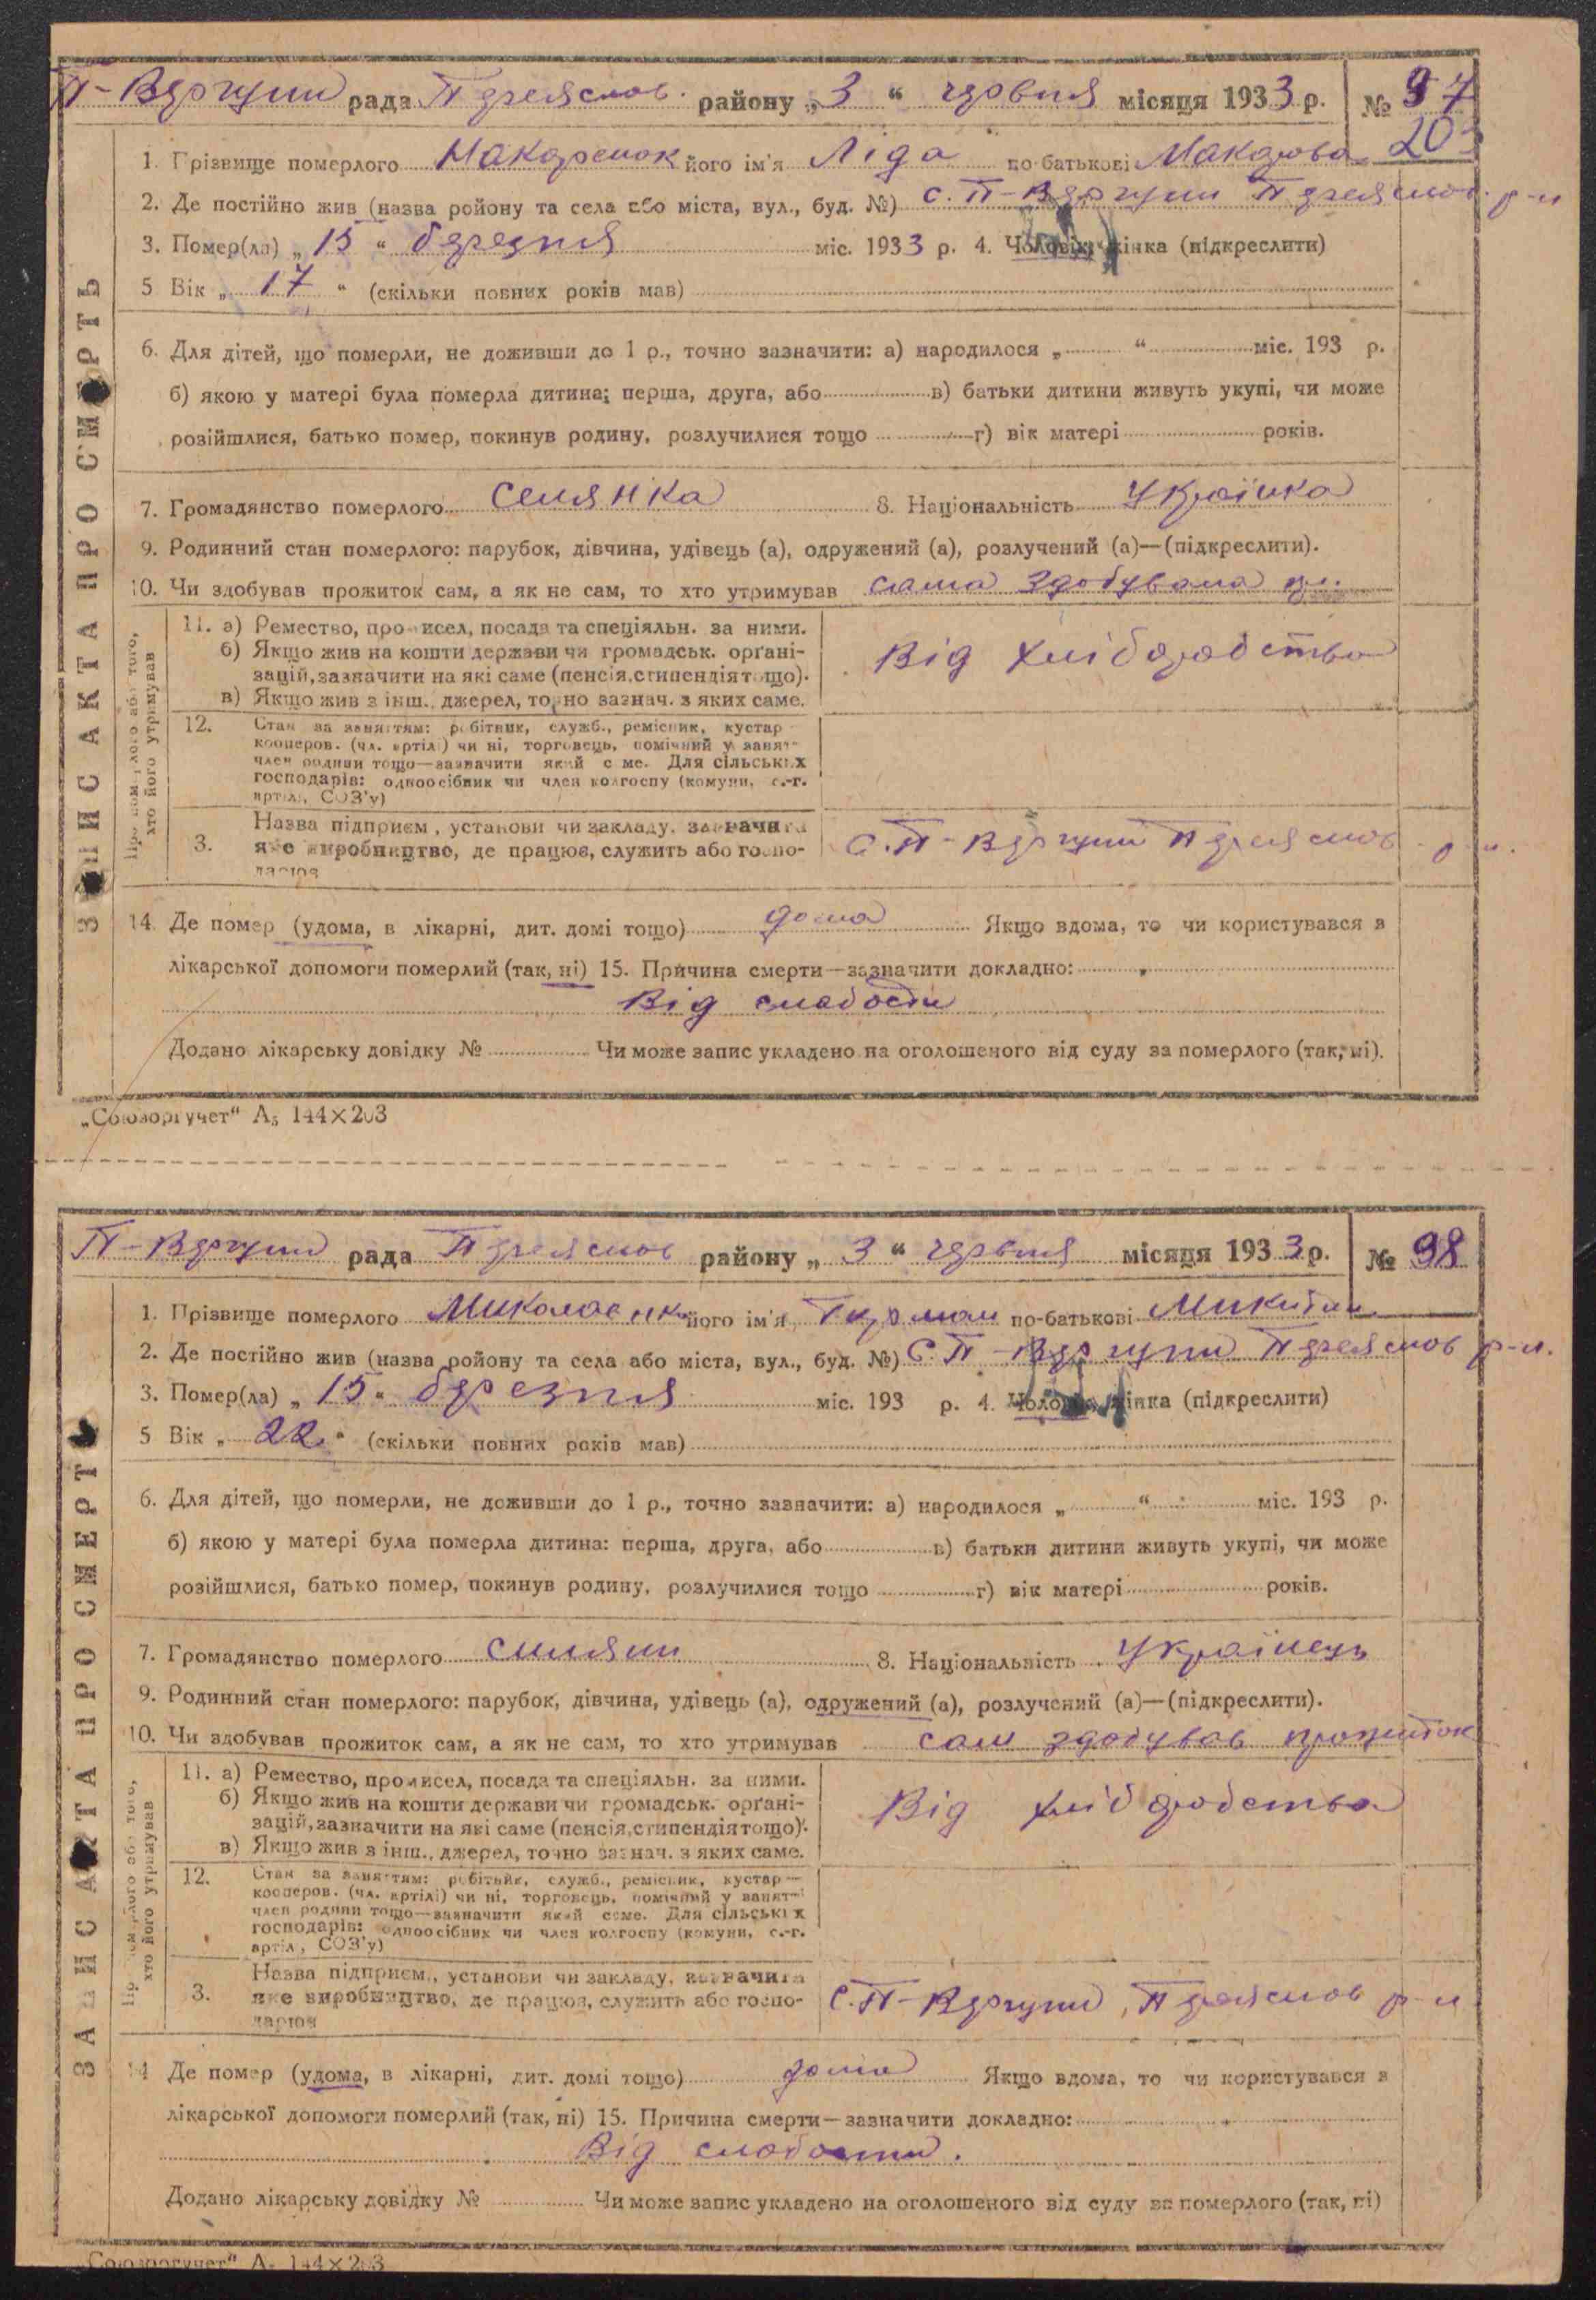 рада району „ 3 “ червня місяця 1933 р. № 97
203
1. Прізвище померлого його ім'я Ліда по-батькові
2. Де постійно жив (назва ройону та села або міста, вул., буд. №) с. П- р-н
3. Помер(ла) „ 15 “ березня міс. 1933 р. 4. Чоловік, жінка (підкреслити)
5 Вік „ 17 “ (скільки повних років мав)
6. Для дітей, що померли, не доживши до 1 р., точно зазначити: а) народилося „ “ міс. 193 р.
б) якою у матері була померла дитина; перша, друга, або в) батьки дитини живуть укупі, чи може
розійшлися, батько помер, покинув родину, розлучилися тощо г) вік матері років.
7. Громадянство померлого селянка 8. Національність Українка
9. Родинний стан померлого: парубок, дівчина, удівець (а), одружений (а), розлучений (а)—(підкреслити).
10. Чи здобував прожиток сам, а як не сам, то хто утримував сама здобувала
ЗАПИС АКТА ПРО СМЕРТЬ
Про померлого або того,
хто його утримував
11. а) Ремество, промисел, посада та спеціяльн. за ними.
б) Якщо жив на кошти держави чи громадськ. орґані-
зацій, зазначити на які саме (пенсія, стипендія тощо).
в) Якщо жив з інш., джерел, точно зазнач. з яких саме.
Від хліборобства
12. Стан за заняттям: робітник, служб., ремісник, кустар
кооперов. (чл. артілі) чи ні, торговець, помічний у занят-
член родини тощо—зазначити який саме. Для сільських
господарів: одноосібник чи член колгоспу (комуни, с.-г.
артіл., СОЗ'у)
3. Назва підприєм., установи чи закладу, зазначити
яке виробництво, де працює, служить або госпо-
дарює
С. П-
14. Де помер (удома, в лікарні, дит. домі тощо) дома Якщо вдома, то чи користувався з
лікарської допомоги померлий (так, ні) 15. Причина смерти—зазначити докладно:
Від слабости
Додано лікарську довідку № Чи може запис укладено на оголошеного від суду за померлого (так, ні).
„Союзоргучет“ А₅ 144×203
рада району „ 3 “ червня місяця 1933 р. № 98
1. Прізвище померлого його ім'я по-батькові
2. Де постійно жив (назва ройону та села або міста, вул., буд. №) С. П- р-н.
3. Помер(ла) „ 15 “ березня міс. 193 р. 4. Чоловік, жінка (підкреслити)
5 Вік „ 22 “ (скільки повних років мав)
6. Для дітей, що померли, не доживши до 1 р., точно зазначити: а) народилося „ “ міс. 193 р.
б) якою у матері була померла дитина: перша, друга, або в) батьки дитини живуть укупі, чи може
розійшлися, батько помер, покинув родину, розлучилися тощо г) вік матері років.
7. Громадянство померлого 8. Національність Українець
9. Родинний стан померлого: парубок, дівчина, удівець (а), одружений (а), розлучений (а)—(підкреслити).
10. Чи здобував прожиток сам, а як не сам, то хто утримував сам здобував прожиток
ЗАПИС АКТА ПРО СМЕРТЬ
Про померлого або того,
хто його утримував
11. а) Ремество, промисел, посада та спеціяльн. за ними.
б) Якщо жив на кошти держави чи громадськ. орґані-
зацій, зазначити на які саме (пенсія, стипендія тощо).
в) Якщо жив з інш., джерел, точно зазнач. з яких саме.
Від хліборобства
12. Стан за заняттям: робітник, служб., ремісник, кустар—
кооперов. (чл. артілі) чи ні, торговець, помічний у занят-
член родини тощо—зазначити який саме. Для сільських
господарів: одноосібник чи член колгоспу (комуни, с.-г.
артіл., СОЗ'у)
3. Назва підприєм., установи чи закладу, зазначити
яке виробництво, де працює, служить або госпо-
дарює
С. П- р-н
14 Де помер (удома, в лікарні, дит. домі тощо) дома Якщо вдома, то чи користувався з
лікарської допомоги померлий (так, ні) 15. Причина смерти—зазначити докладно:
Від слабости.
Додано лікарську довідку № Чи може запис укладено на оголошеного від суду за померлого (так, ні)
„Союзоргучет“ А₅ 144×203